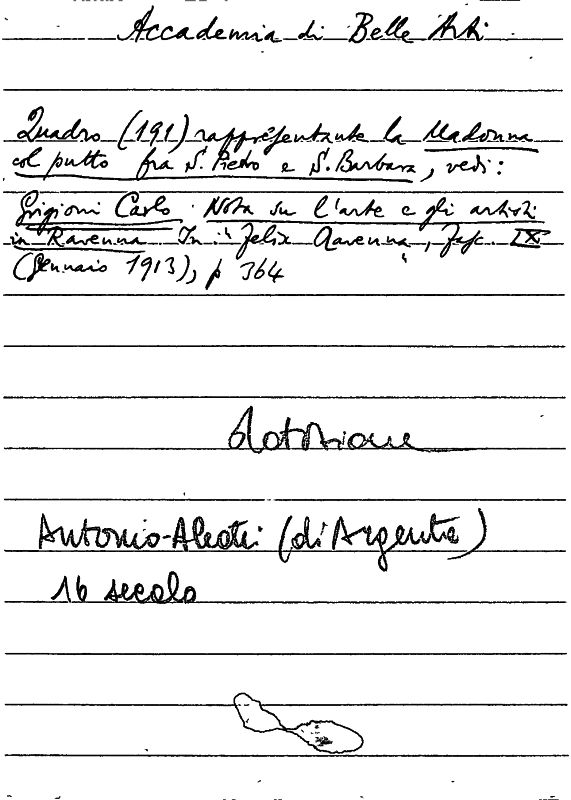 Accademia di Belle Arti
Quadro (191) rappresentante la Madonna
col putto fra S. Pietro e S. Barbara, vedi:
Grigioni Carlo. Nota su l'arte e gli artisti
in Ravenna In: "Felix Ravenna", Fasc. IX
(Gennaio 1913), p 364
Antonio-Aleotti (di Argenta)
16 secolo